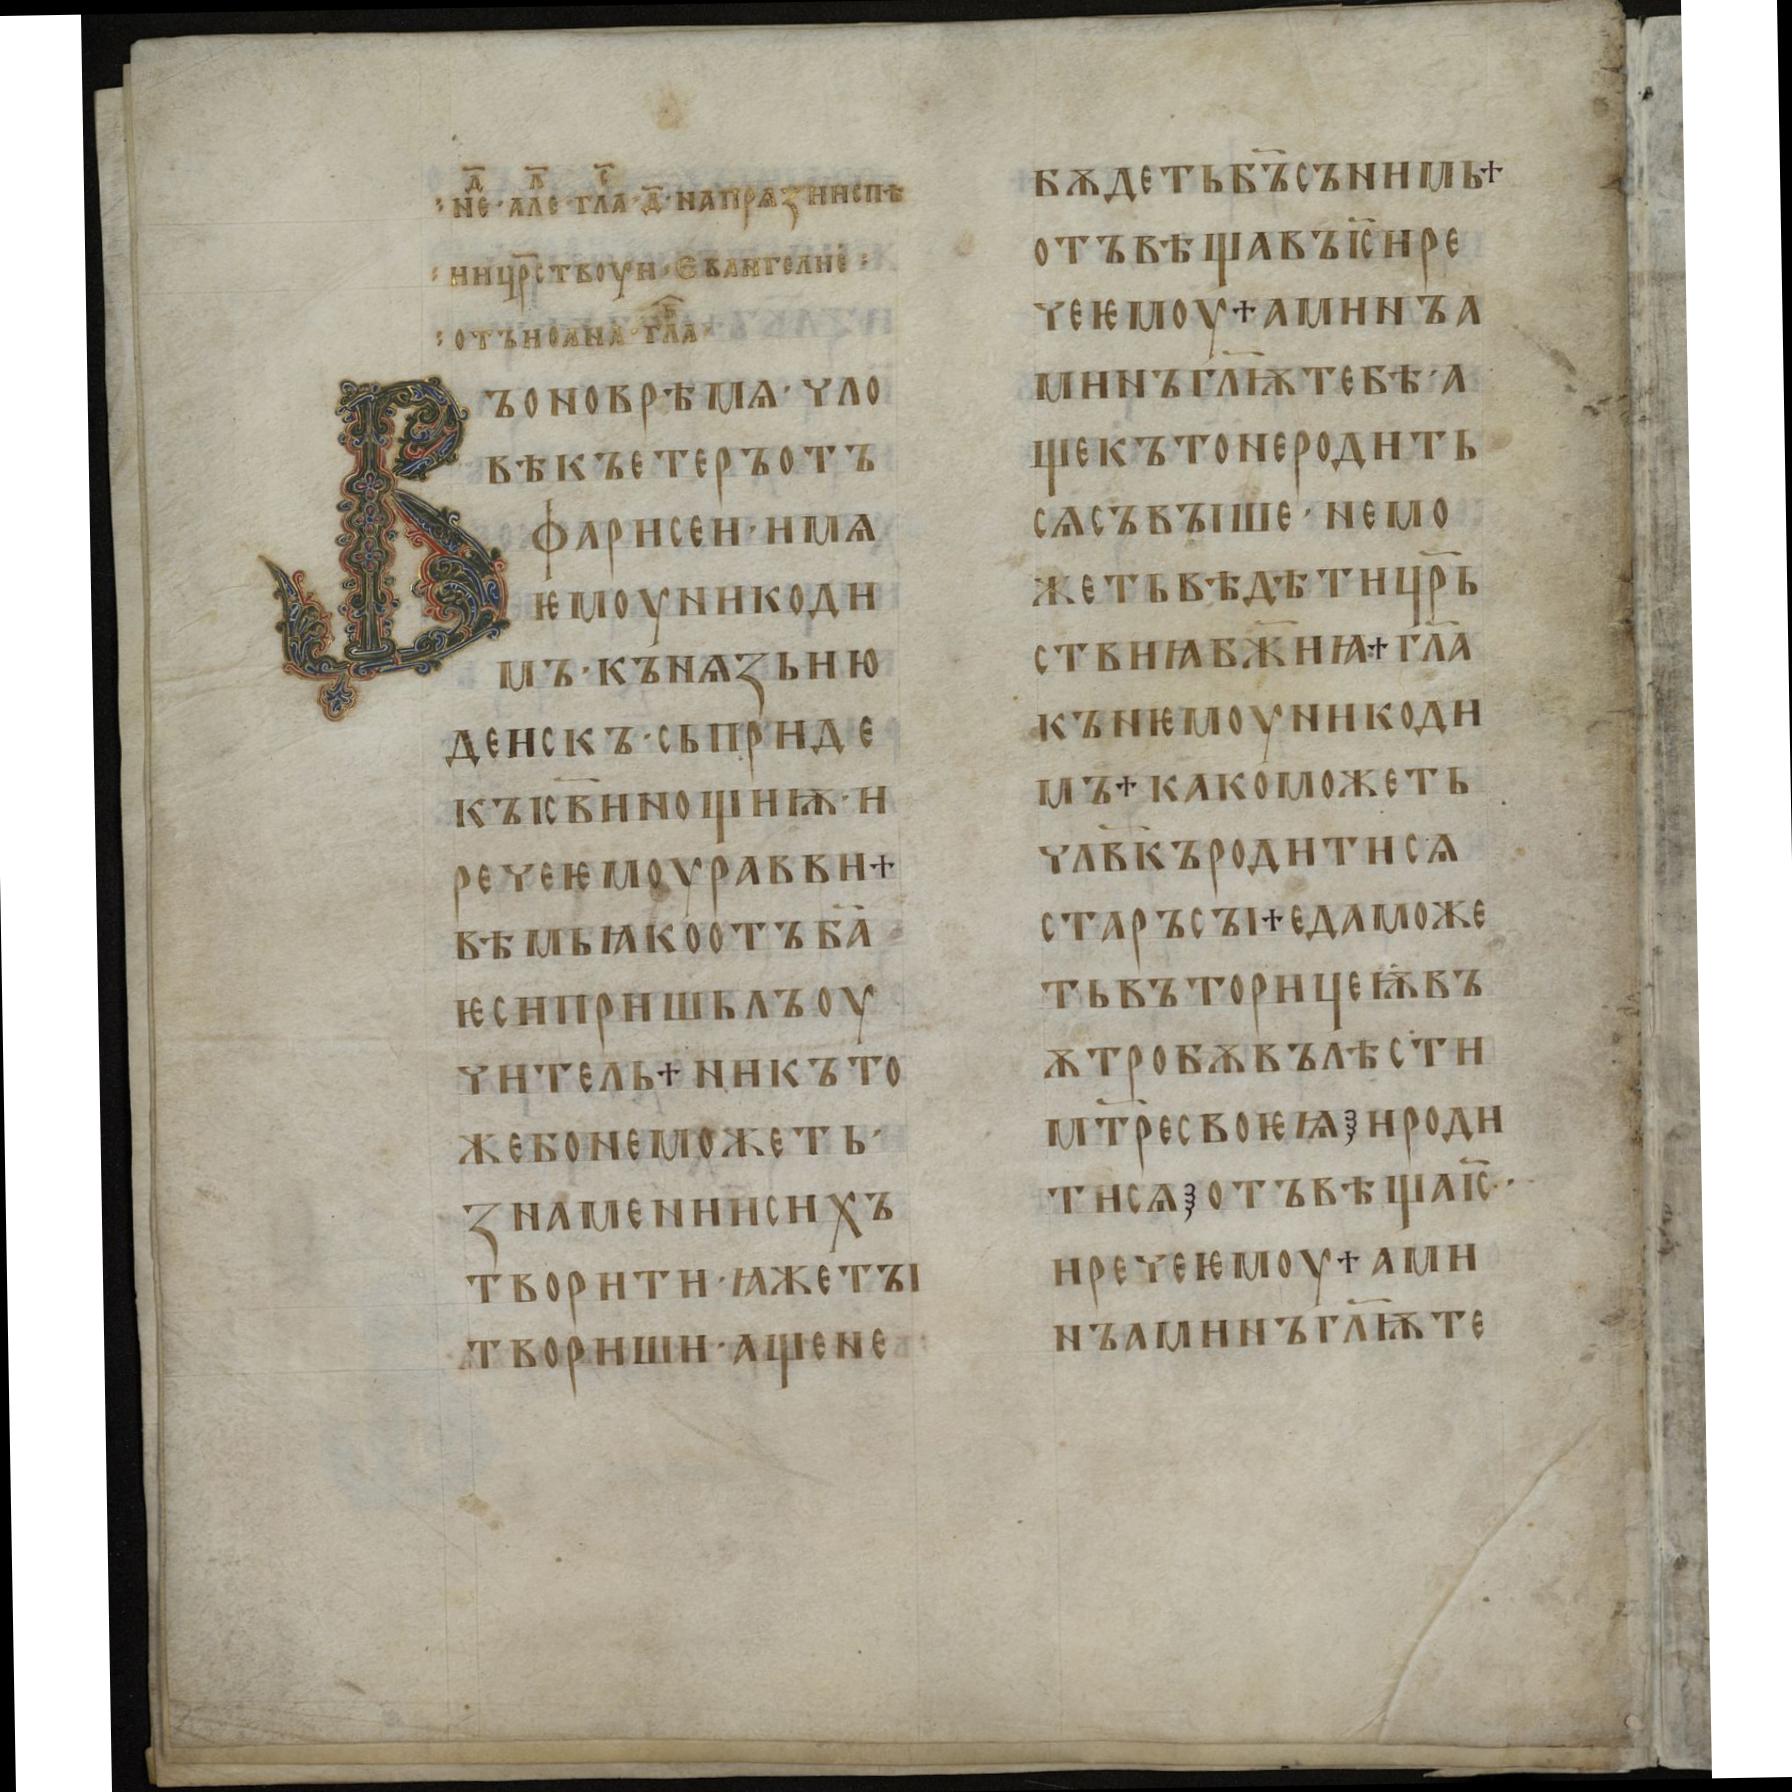 :не҃·але·гла·д҃·напрѧзниспѣ
:ницр҃ствоуи·Еѵангелиѥ:
:отъиоана·гла·
Въоноврѣмѧ·чло
вѣкъетеръотъ
фарисеи·имѧ
ѥмоуникоди
мъ·кънѧзьию
деискъ·сьприде
къі҃св҃иинощиѭ·и
речеѥмоуравви+
вѣмьꙗкоотъб҃а
ѥсипришьлъоу
читель+никъто
жебонеможеть·
знаменииисихъ
творити·ꙗжетꙑ
твориши·ащене
бѫдетьб҃ъснимь+
отъвѣщавъі҃сире
чеѥмоу+аминъа
минъгл҃ѭтебѣ·а
щекътонеродить
сѧсъвꙑше·немо
жетьвѣдѣтицр҃ь
ствиꙗбж҃иꙗ+гл҃а
кънѥмоуникоди
мъ+какоможеть
члв҃къродитисѧ
старъсꙑ+едаможе
тьвъторицеѭвъ
ѫтробѫвълѣсти
мт҃ресвоѥѩ҂ироди
тисѧ҂отъвѣщаі҃с··
иречеѥмоу+ами
нъаминъгл҃ѭте